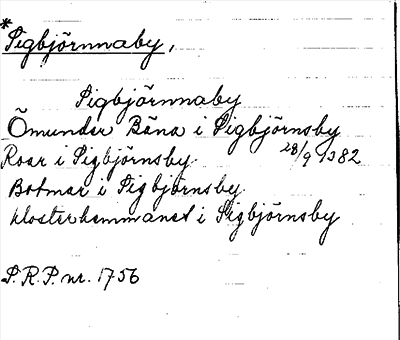 *Sigbjörnnaby,
Sigbjörnnaby
Ömunder Bäna i Sigbjörnsby
Roar i Sigbjörnsby. 28/9 1382
Botmar i Sigbjörnsby.
klosterhemmanet i Sigbjörnsby
S.R.P. nr. 1756